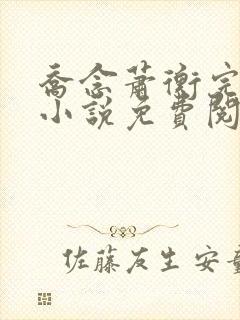 喬念蕭衡完
小說免費閱
佐藤友生安